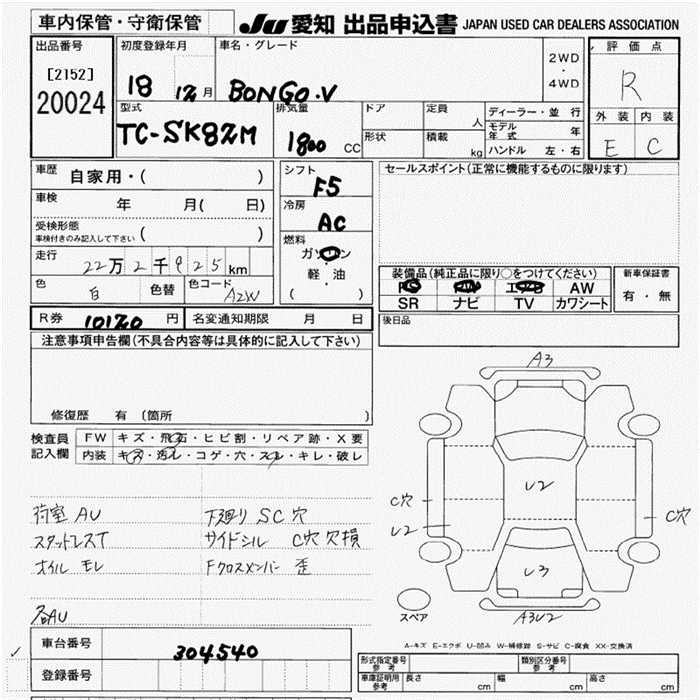 車内保管・守衛保管
JU 愛知 出品申込書 JAPAN USED CAR DEALERS ASSOCIATION
出品番号
[2152]
20024
初度登録年月
18 12 月
車名・グレード
BONGO.V
2WD
・
4WD
評価点
R
外装 内装
E C
型式
TC-SK82M
排気量
1800 CC
ドア
形状
定員 人
積載 kg
ディーラー・並 行
モデル年式 年
ハンドル 左・右
車歴 自家用・( )
車検 年 月( 日)
受検形態
車検付きのみ記入して下さい ( )
走行
22万2千925km
色 白 色替 色コード A2W
シフト
F5
冷房
AC
燃料
ガソリン
・
軽・油
( )
セールスポイント(正常に機能するものに限ります)
装備品(純正品に限り○をつけてください)
PS PW エアB AW
SR ナビ TV カワシート
新車保証書
有・無
R券 10120 円 名変通知期限 月 日
後日品
注意事項申告欄(不具合内容等は具体的に記入して下さい)
修復歴 有 〔箇所 〕
検査員
記入欄
FW キズ・飛石・ヒビ割・リペア跡・X要
内装 キズ・汚レ・コゲ・穴・スレ・キレ・破レ
荷室 AU 下廻り SC 穴
スタットレスT サイドシル C穴 欠損
オイル モレ Fクロスメンバー 歪
各AU
A3
U2
C穴
U2
C穴
U3
A3U2
スペア
A-キズ E-エクボ U-凹み W-補修跡 S-サビ C-腐食 XX-交換済
車台番号 304540
登録番号
型式指定番号
参考
類別区分番号
参考
車庫証明用
参考
長さ cm 幅 cm 高さ cm